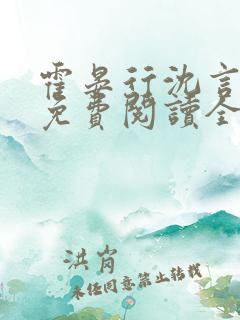 霍晏行沈言
免費閱讀全
洪肖
未经同意禁止转载